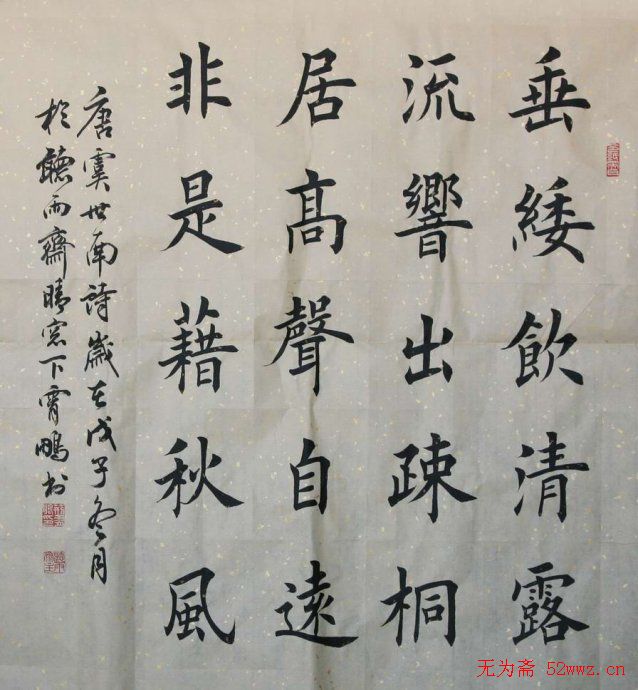 垂緌飲清露
流響出踈桐
居高聲自遠
非是藉秋風
唐虞世南詩歲在戊子冬月
於聽雨齋晴窓下霄鵬书
无为斋 52wwz.cn